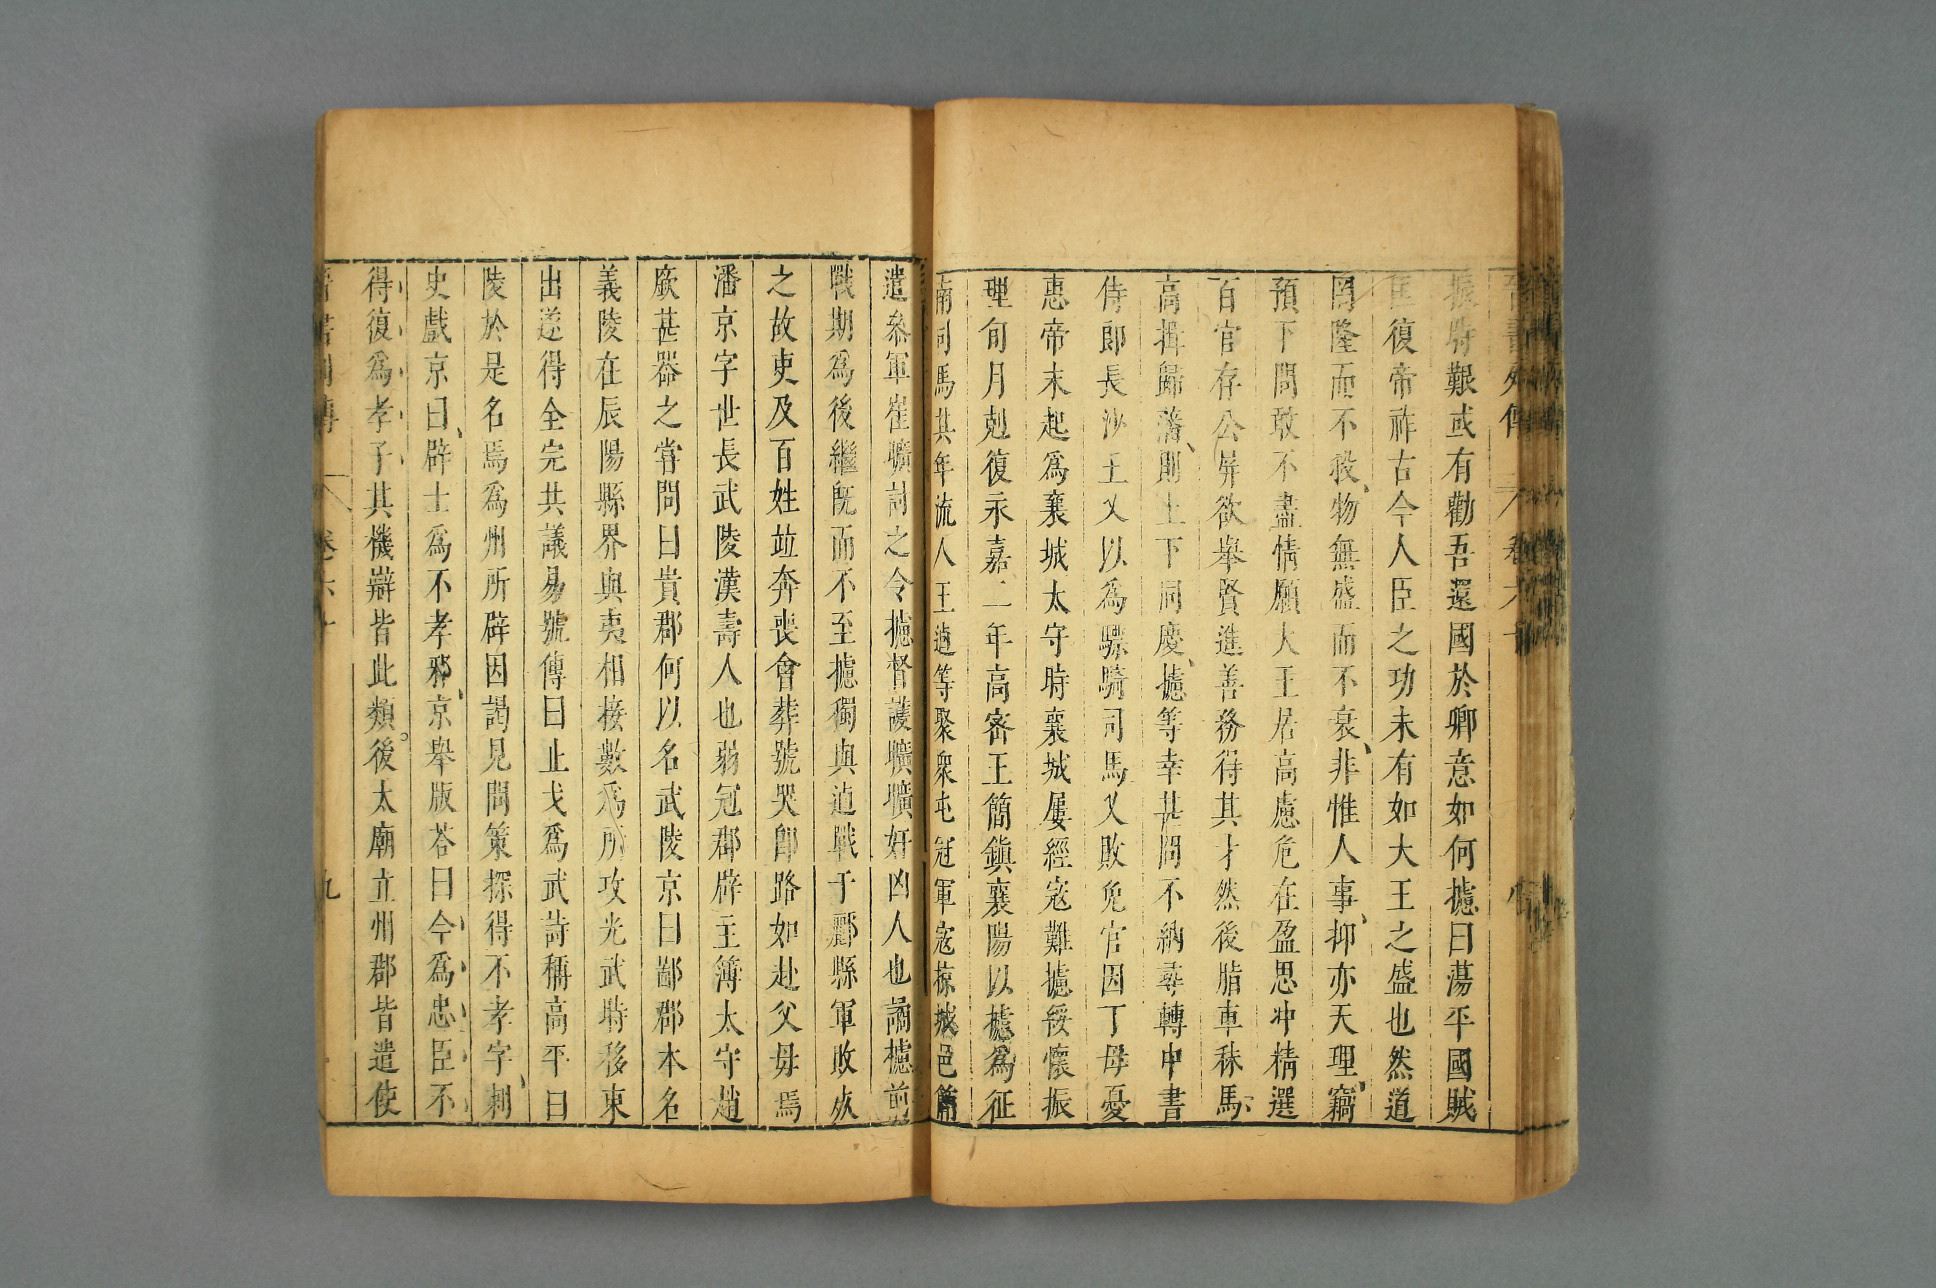 晉書列傳 卷六十 八
據時艱或有勸吾還國於卿意如何攄曰蕩平國賊
匡復帝祚古今人臣之功未有如大王之盛也然道
罔隆而不殺物無盛而不衰非惟人事抑亦天理竊
預下問敢不盡情願大王居高慮危在盈思冲精選
百官存公屏欲舉賢進善務得其才然後脂車秣馬
高揖歸藩則上下同慶攄等幸甚冏不納尋轉中書
侍郎長沙王乂以為驃騎司馬乂敗免官因丁母憂
惠帝末起爲襄城太守時襄城屢經寇難攄綏懷振
理旬月剋復永嘉二年高密王簡鎮襄陽以攄爲征
南司馬其年流人王逌等聚衆屯冠軍寇掠城邑簡
遣叅軍崔曠討之令攄督護曠曠奸凶人也譎攄前
戰期爲後繼既而不至攄獨與逌戰于酈縣軍敗死
之故吏及百姓竝奔喪會葬號哭卽路如赴父母焉
潘京字世長武陵漢壽人也弱冠郡辟主簿太守趙
廞甚器之嘗問曰貴郡何以名武陵京曰鄙郡本名
義陵在辰陽縣界與夷相接數爲所攻光武時移東
出遂得全完共議易號傳曰止戈爲武詩稱高平曰
陵於是名焉爲州所辟因謁見問策探得不孝字刺
史戲京曰辟士爲不孝邪京舉版荅曰今爲忠臣不
得復爲孝子其機辯皆此類後太廟立州郡皆遣使
晉書列傳 卷六十 九